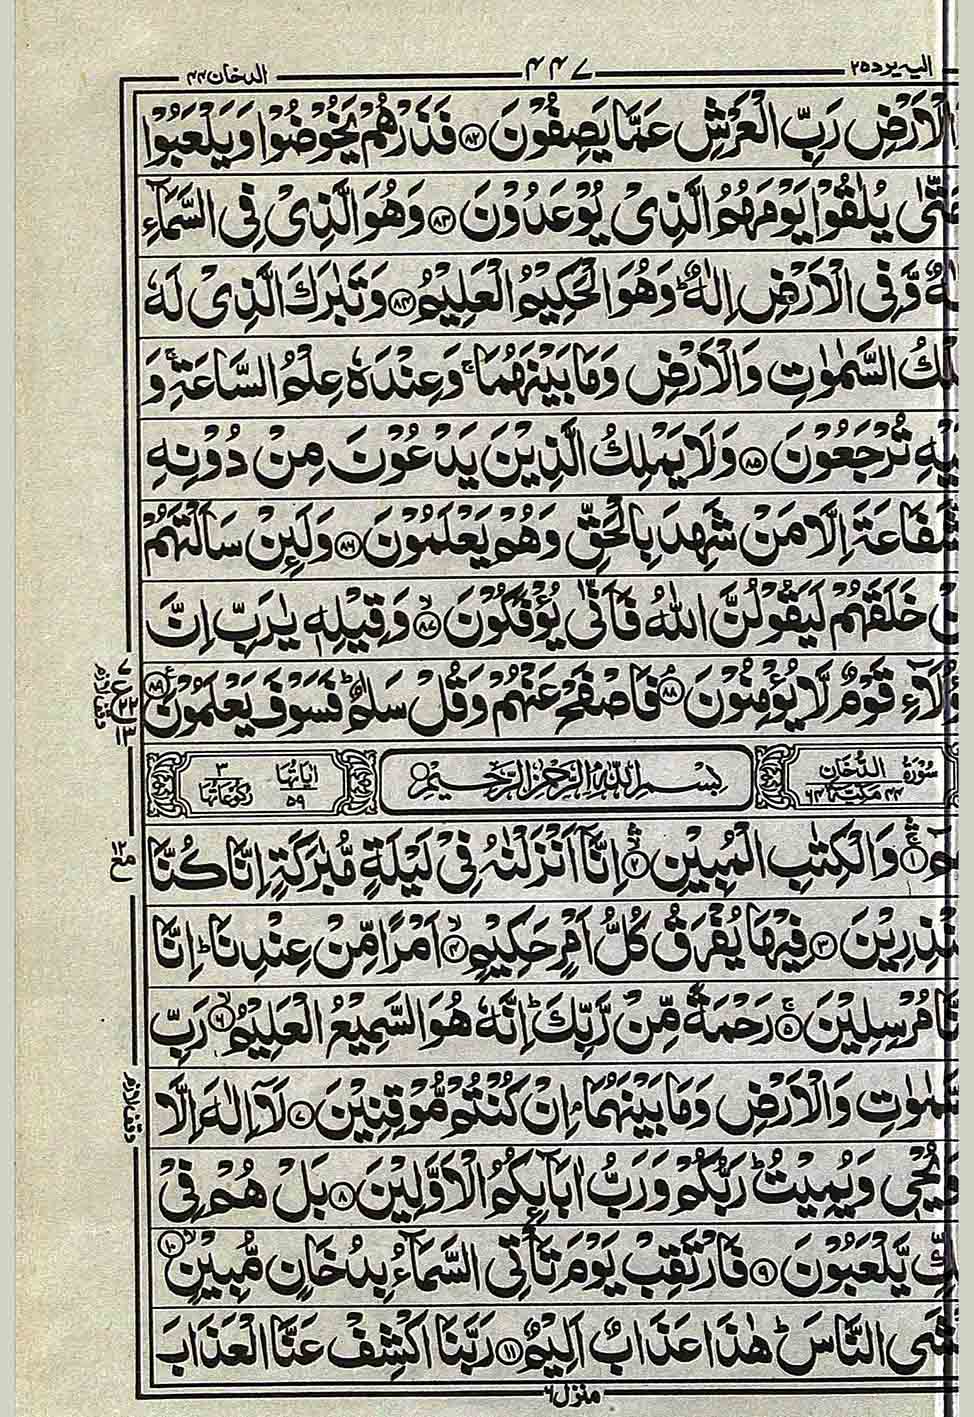 الیه یرد ۲۵
۴۴۷
الدخان ۴۴
الْاَرْضِ رَبِّ الْعَرْشِ عَمَّا يَصِفُوْنَ ۸۲ فَذَرْهُمْ يَخُوْضُوْا وَيَلْعَبُوْا
يُلٰقُوْا يَوْمَهُمُ الَّذِيْ يُوْعَدُوْنَ ۸۳ وَهُوَ الَّذِيْ فِي السَّمَآءِ
وَّفِي الْاَرْضِ اِلٰهٌ ؕ وَهُوَ الْحَكِيْمُ الْعَلِيْمُ ۸۴ وَتَبٰرَكَ الَّذِيْ لَهٗ
السَّمٰوٰتِ وَالْاَرْضِ وَمَا بَيْنَهُمَا ۚ وَعِنْدَهٗ عِلْمُ السَّاعَةِ ۚ وَ
تُرْجَعُوْنَ ۸۵ وَلَا يَمْلِكُ الَّذِيْنَ يَدْعُوْنَ مِنْ دُوْنِهِ
اِلَّا مَنْ شَهِدَ بِالْحَقِّ وَهُمْ يَعْلَمُوْنَ ۸۶ وَلَئِنْ سَاَلْتَهُمْ
خَلَقَهُمْ لَيَقُوْلُنَّ اللّٰهُ فَاَنّٰى يُؤْفَكُوْنَ ۸۷ وَقِيْلِهٖ يٰرَبِّ اِنَّ
قَوْمٌ لَّا يُؤْمِنُوْنَ ۸۸ فَاصْفَحْ عَنْهُمْ وَقُلْ سَلٰمٌ ؕ فَسَوْفَ يَعْلَمُوْنَ ۸۹
سُوْرَةُ الدُّخَانِ ۴۴ مَكِّيَّةٌ ۶۴
بِسْمِ اللّٰهِ الرَّحْمٰنِ الرَّحِيْمِ
اٰيَاتُهَا ۵۹
۳ رُكُوْعَاتُهَا
۱ وَالْكِتٰبِ الْمُبِيْنِ ۲ اِنَّاۤ اَنْزَلْنٰهُ فِيْ لَيْلَةٍ مُّبٰرَكَةٍ اِنَّا كُنَّا
۳ فِيْهَا يُفْرَقُ كُلُّ اَمْرٍ حَكِيْمٍ ۴ اَمْرًا مِّنْ عِنْدِنَا ؕ اِنَّا
مُرْسِلِيْنَ ۵ رَحْمَةً مِّنْ رَّبِّكَ ؕ اِنَّهٗ هُوَ السَّمِيْعُ الْعَلِيْمُ ۶ رَبِّ
وَالْاَرْضِ وَمَا بَيْنَهُمَا ۘ اِنْ كُنْتُمْ مُّوْقِنِيْنَ ۷ لَاۤ اِلٰهَ اِلَّا
وَيُمِيْتُ ؕ رَبُّكُمْ وَرَبُّ اٰبَآئِكُمُ الْاَوَّلِيْنَ ۸ بَلْ هُمْ فِيْ
يَّلْعَبُوْنَ ۹ فَارْتَقِبْ يَوْمَ تَاْتِي السَّمَآءُ بِدُخَانٍ مُّبِيْنٍ ۱۰
النَّاسَ ؕ هٰذَا عَذَابٌ اَلِيْمٌ ۱۱ رَبَّنَا اكْشِفْ عَنَّا الْعَذَابَ
منزل ۶